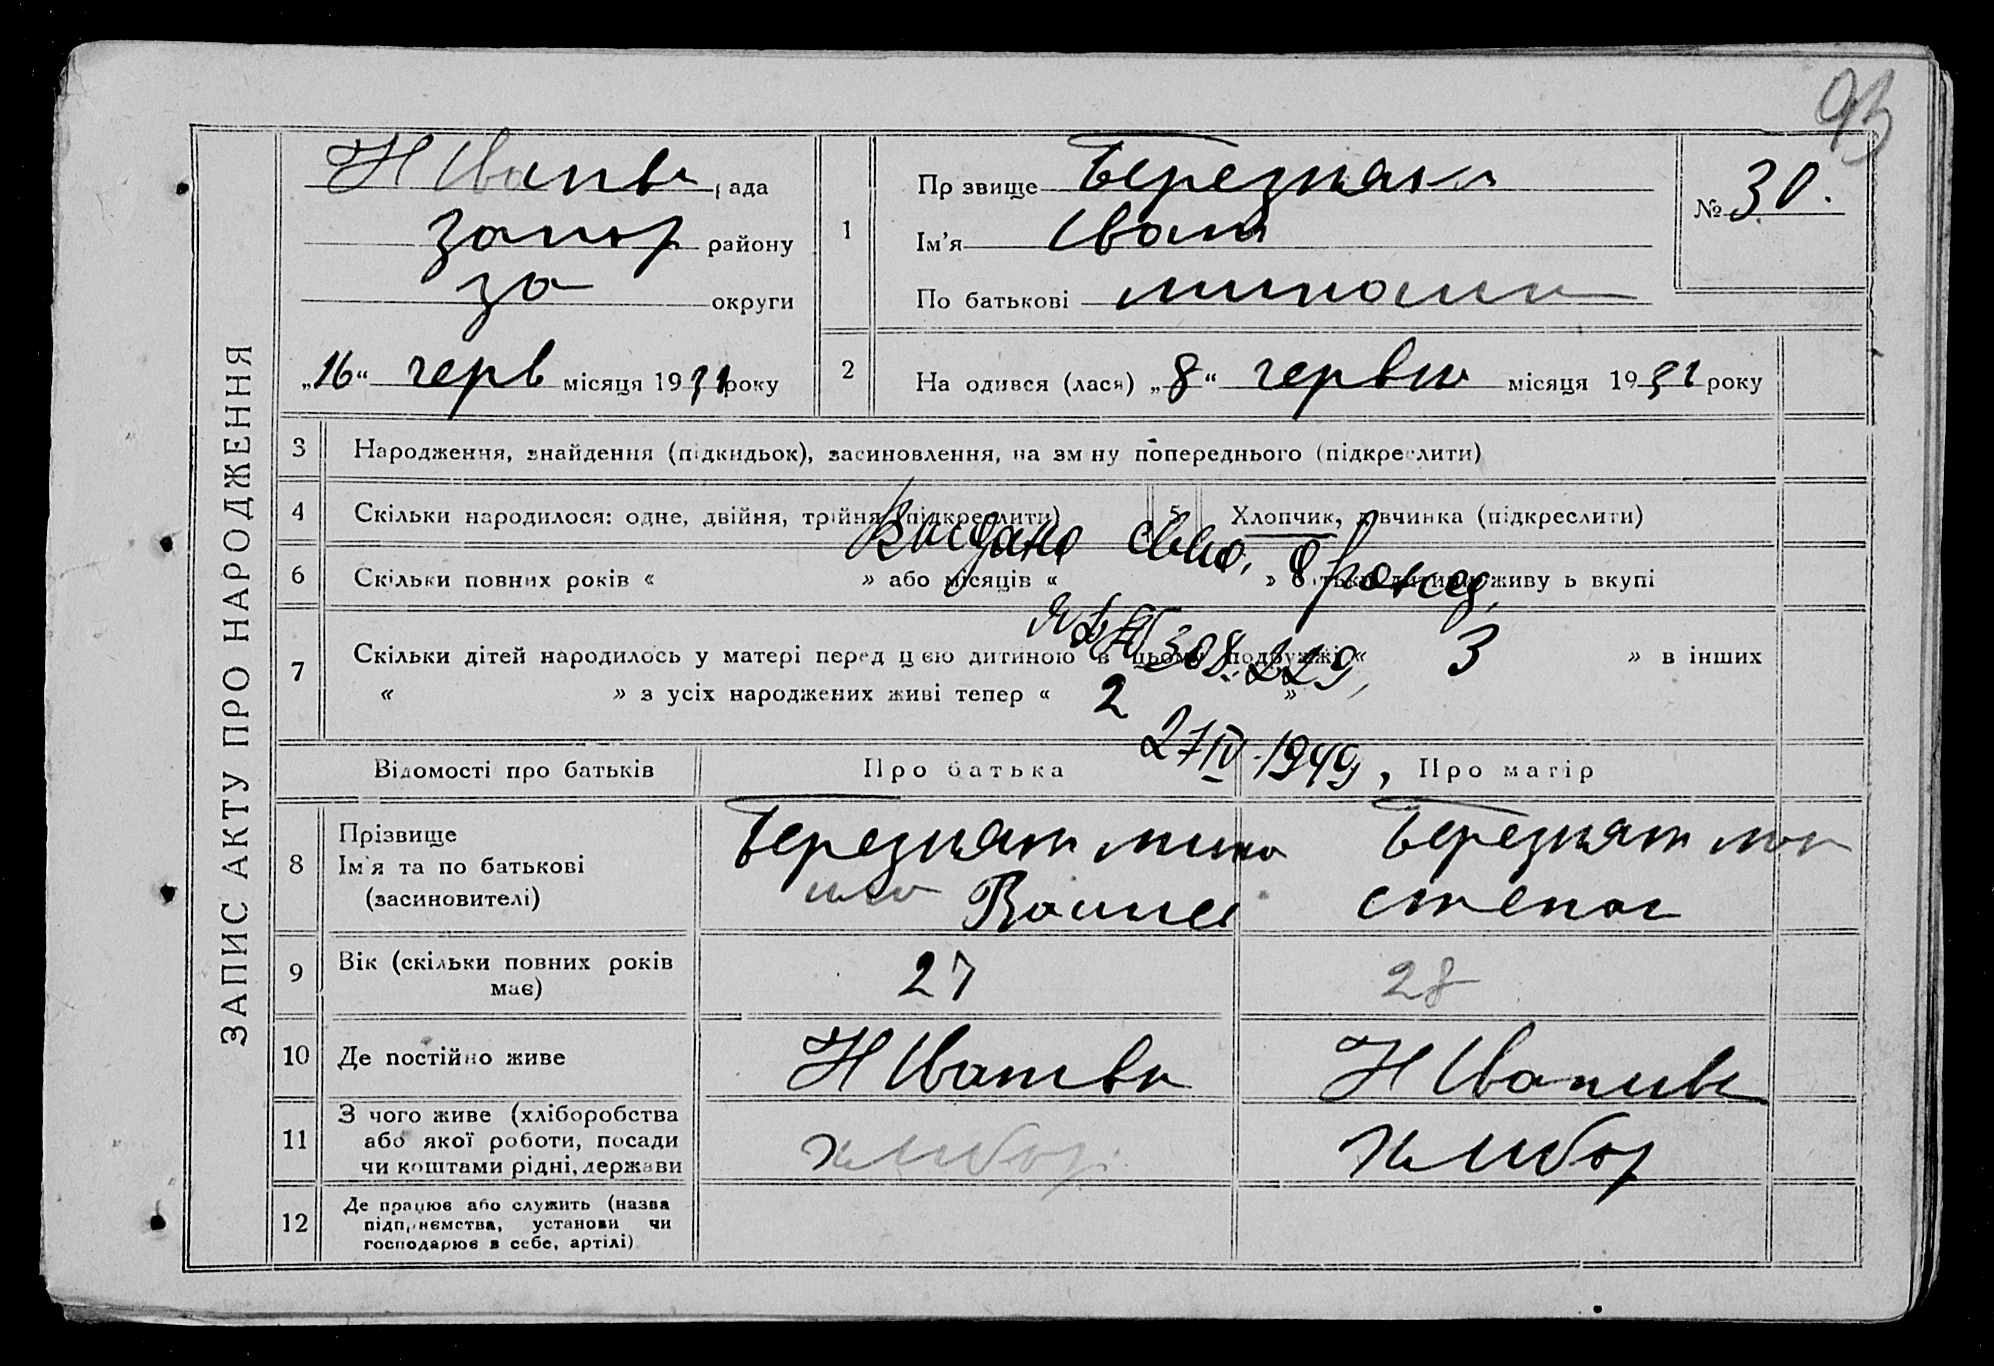 93
ЗАПИС АКТУ ПРО НАРОДЖЕННЯ
Н Іванів рада
Запор району
За округи
„16“ черв місяця 1931 року
1
Пр звище Березняки
Ім'я Іван
По батькові
№ 30.
2
На одився (лася) „8“ червня місяця 1931 року
3 Народження, знайдення (підкидьок), засиновлення, на зм ну попереднього (підкреслити)
4 Скільки народилося: одне, двійня, трійня (підкреслити)
5 Хлопчик, дівчинка (підкреслити)
6 Скільки повних років « » або місяців « » батьки дитини живу ь вкупі
7 Скільки дітей народилось у матері перед цією дитиною в цьому подружжі « 3 » в інших
« » з усіх народжених живі тепер « 2 »
Выдано свид. о рожд.
308229,
27 IV 1949,
Відомості про батьків
Про батька
Про матір
8 Прізвище
Ім'я та по батькові
(засиновителі)
Березняк
Березняк
степан
9 Вік (скільки повних років
має)
27
28
10 Де постійно живе
Н Іванівк
Н Іванівк
11 З чого живе (хліборобства
або якої роботи, посади
чи коштами рідні, держави
хлибор
хлибор
12 Де працює або служить (назва
підприємства, установи чи
господарює в себе, артілі)